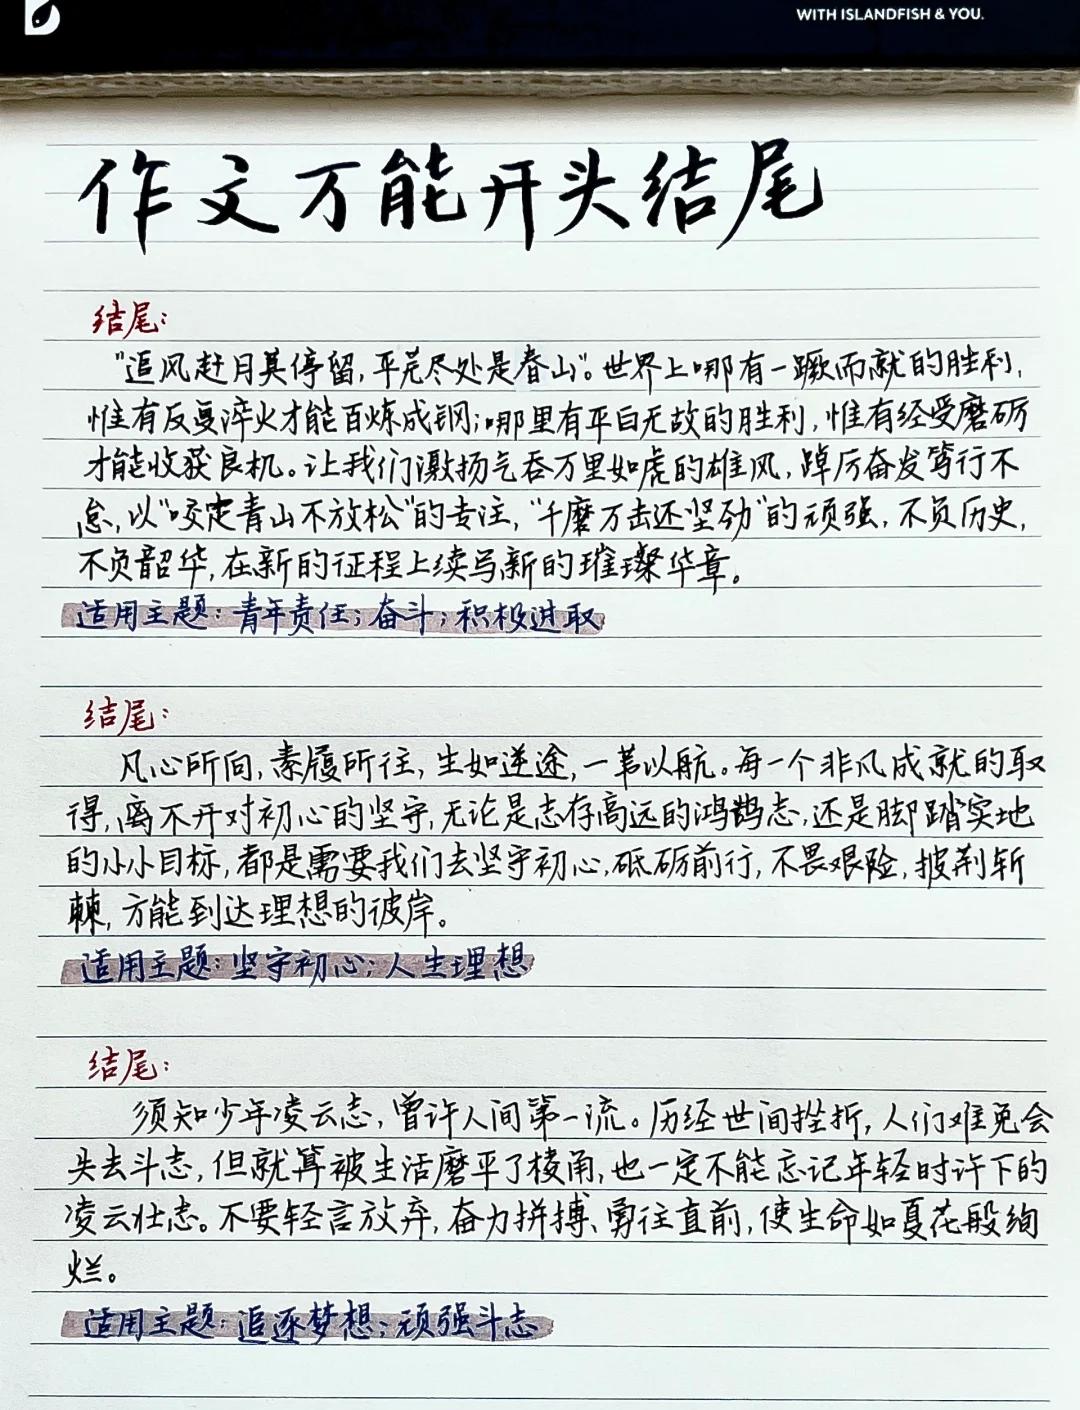 WITH ISLANDFISH & YOU.
作文万能开头结尾
结尾：
“追风赶月莫停留，平芜尽处是春山”。世界上哪有一蹶而就的胜利，
惟有反复淬火才能百炼成钢；哪里有平白无故的胜利，惟有经受磨砺
才能收获良机。让我们激扬气吞万里如虎的雄风，踔厉奋发笃行不
怠，以“咬定青山不放松”的专注，“千磨万击还坚劲”的顽强，不负历史，
不负韶华，在新的征程上续写新的璀璨华章。
适用主题：青年责任；奋斗；积极进取
结尾：
凡心所向，素履所往，生如逆途，一苇以航。每一个非凡成就的取
得，离不开对初心的坚守，无论是志存高远的鸿鹄志，还是脚踏实地
的小小目标，都是需要我们去坚守初心，砥砺前行，不畏艰险，披荆斩
棘，方能到达理想的彼岸。
适用主题：坚守初心；人生理想
结尾：
须知少年凌云志，曾许人间第一流。历经世间挫折，人们难免会
失去斗志，但就算被生活磨平了棱角，也一定不能忘记年轻时许下的
凌云壮志。不要轻言放弃，奋力拼搏、勇往直前，使生命如夏花般绚
烂。
适用主题：追逐梦想；顽强斗志